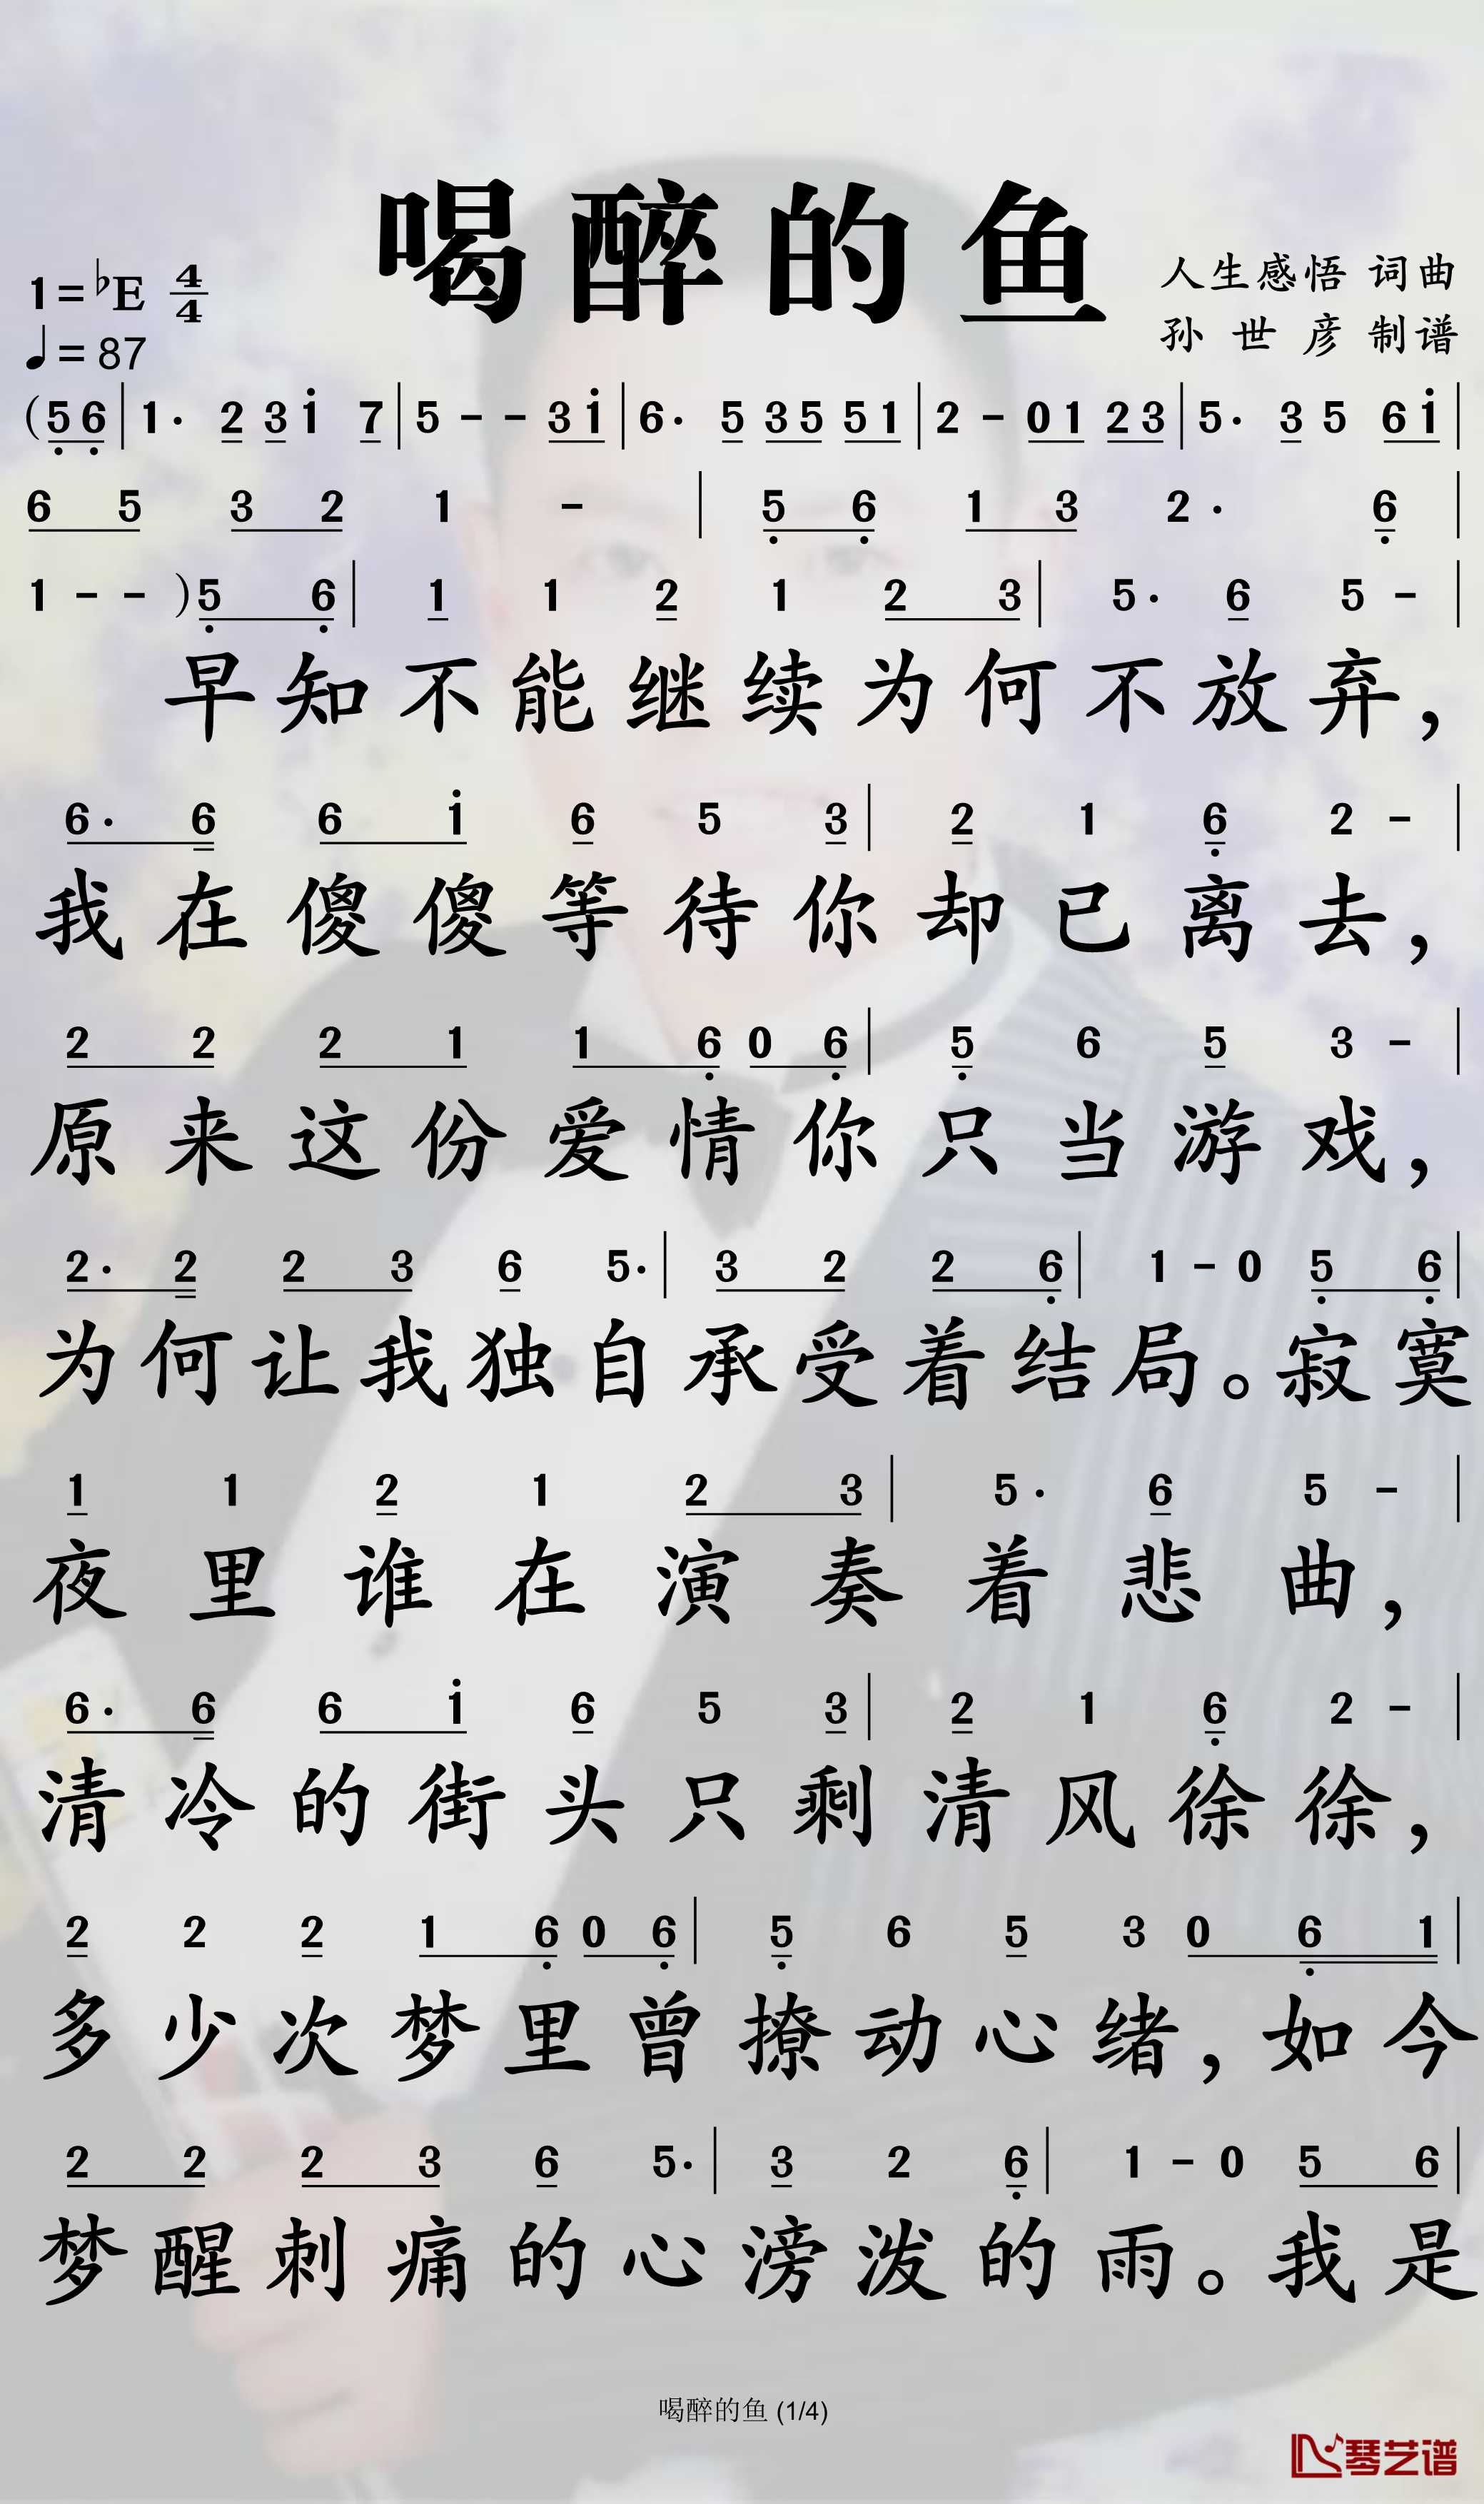 喝醉的鱼
1=♭E 4/4
人生感悟 词曲
♩=87
孙世彦 制谱
(5 6 | 1· 2 3 i 7 | 5 - - 3 i | 6· 5 3 5 5 1 | 2 - 0 1 2 3 | 5· 3 5 6 i |
6 5 3 2 1 - | 5 6 1 3 2· 6 |
1 - - ) 5 6 | 1 1 2 1 2 3 | 5· 6 5 - |
早知不能继续为何不放弃，
6· 6 6 i 6 5 3 | 2 1 6 2 - |
我在傻傻等待你却已离去，
2 2 2 1 1 6 0 6 | 5 6 5 3 - |
原来这份爱情你只当游戏，
2· 2 2 3 6 5· | 3 2 2 6 | 1 - 0 5 6 |
为何让我独自承受着结局。寂寞
1 1 2 1 2 3 | 5· 6 5 - |
夜里谁在演奏着悲曲，
6· 6 6 i 6 5 3 | 2 1 6 2 - |
清冷的街头只剩清风徐徐，
2 2 2 1 6 0 6 | 5 6 5 3 0 6 1 |
多少次梦里曾撩动心绪，如今
2 2 2 3 6 5· | 3 2 6 | 1 - 0 5 6 |
梦醒刺痛的心滂泼的雨。我是
喝醉的鱼 (1/4)
琴艺谱